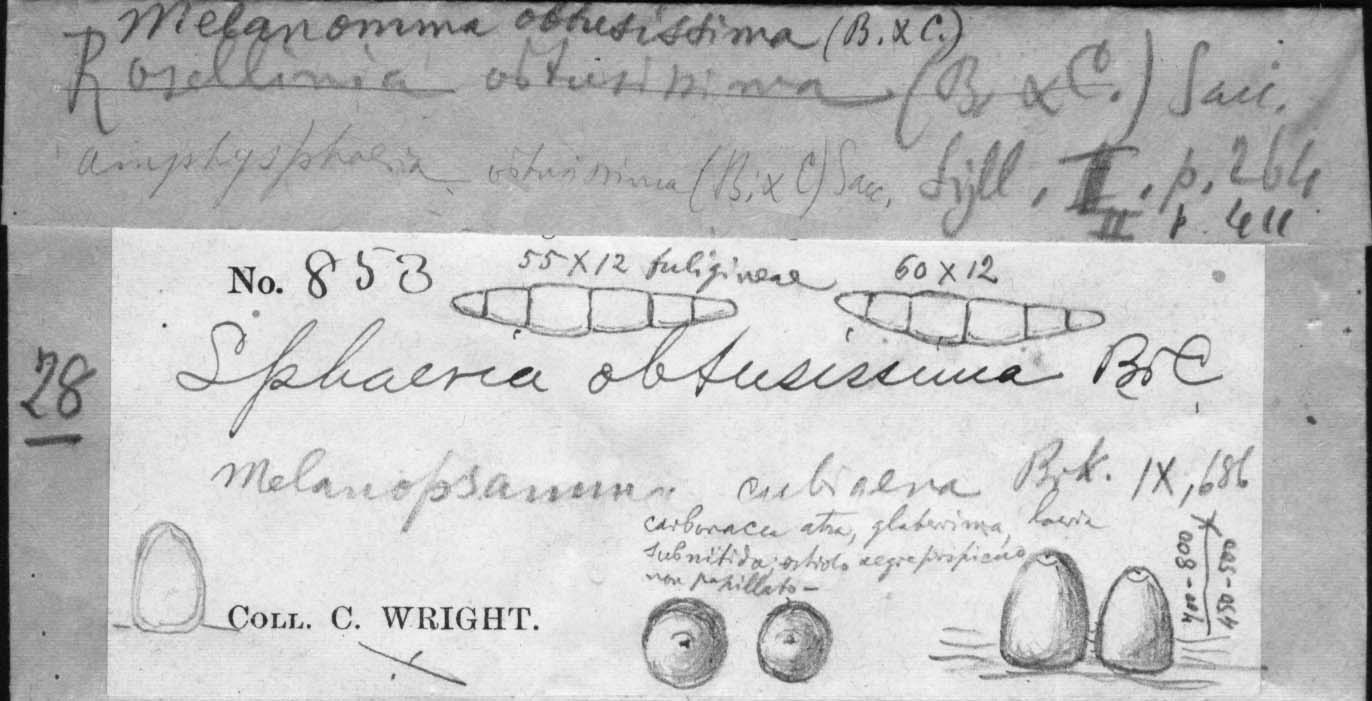 Melanomma obtusissima (B. & C.)
Rosellinia obtusissima (B. & C.) Sacc.
Amphysphaeria obtusissima (B. & C) Sacc. Syll. II, p. 264
II p. 411
No. 853
55 X 12 fuligineae
60 X 12
28
Sphaeria obtusissima B&C
Melanopsamma cubiaena Berk. IX, 686
carbonacea atra, glaberrima, laevia
subnitida; ostiolo aegre perspicuo
non papillato –
450-500
X
400-800
COLL. C. WRIGHT.